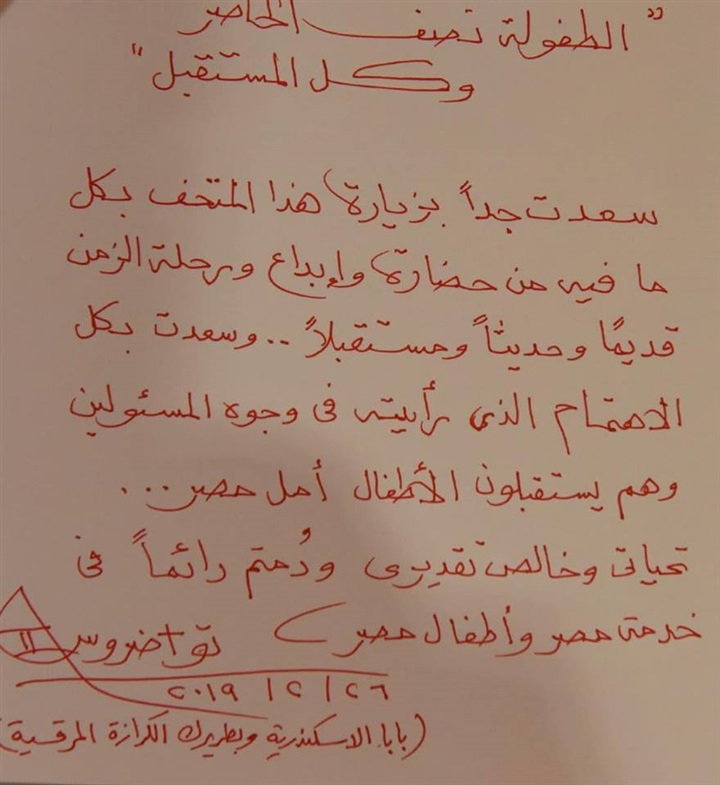 "الطفولة نصف الحاضر
وكل المستقبل"
سعدت جداً بزيارة هذا المتحف بكل
ما فيه من حضارة وإبداع ورحلة الزمن
قديمًا وحديثاً ومستقبلاً .. وسعدت بكل
الاهتمام الذى رأيته فى وجوه المسئولين
وهم يستقبلون الأطفال أمل مصر ...
تحياتى وخالص تقديرى ودُمتم دائماً فى
خدمة مصر وأطفال مصر تواضروس II
٢٦ / ٢ / ٢٠١٩
(بابا الاسكندرية وبطريرك الكرازة المرقسية)